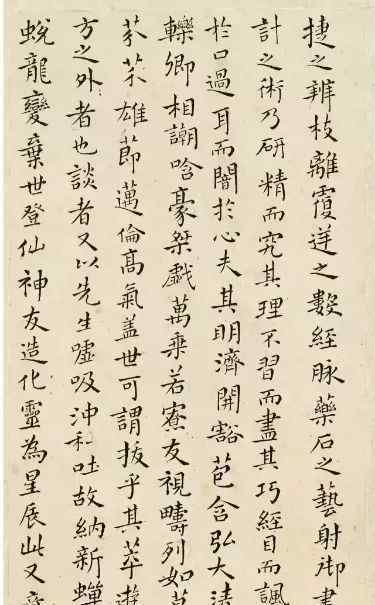 捷之辨枝離覆逆之數經脉藥石之藝射御書
計之術乃研精而究其理不習而盡其巧經目而諷
於口過耳而闇於心夫其明濟開豁苞含弘大
轢卿相謿唅豪桀戲萬乘若寮友視疇列如草
芥雄節邁倫高氣盖世可謂拔乎其萃遊
方之外者也談者又以先生噓吸沖和吐故納新蟬
蛻龍變棄世登仙神友造化靈為星展此又